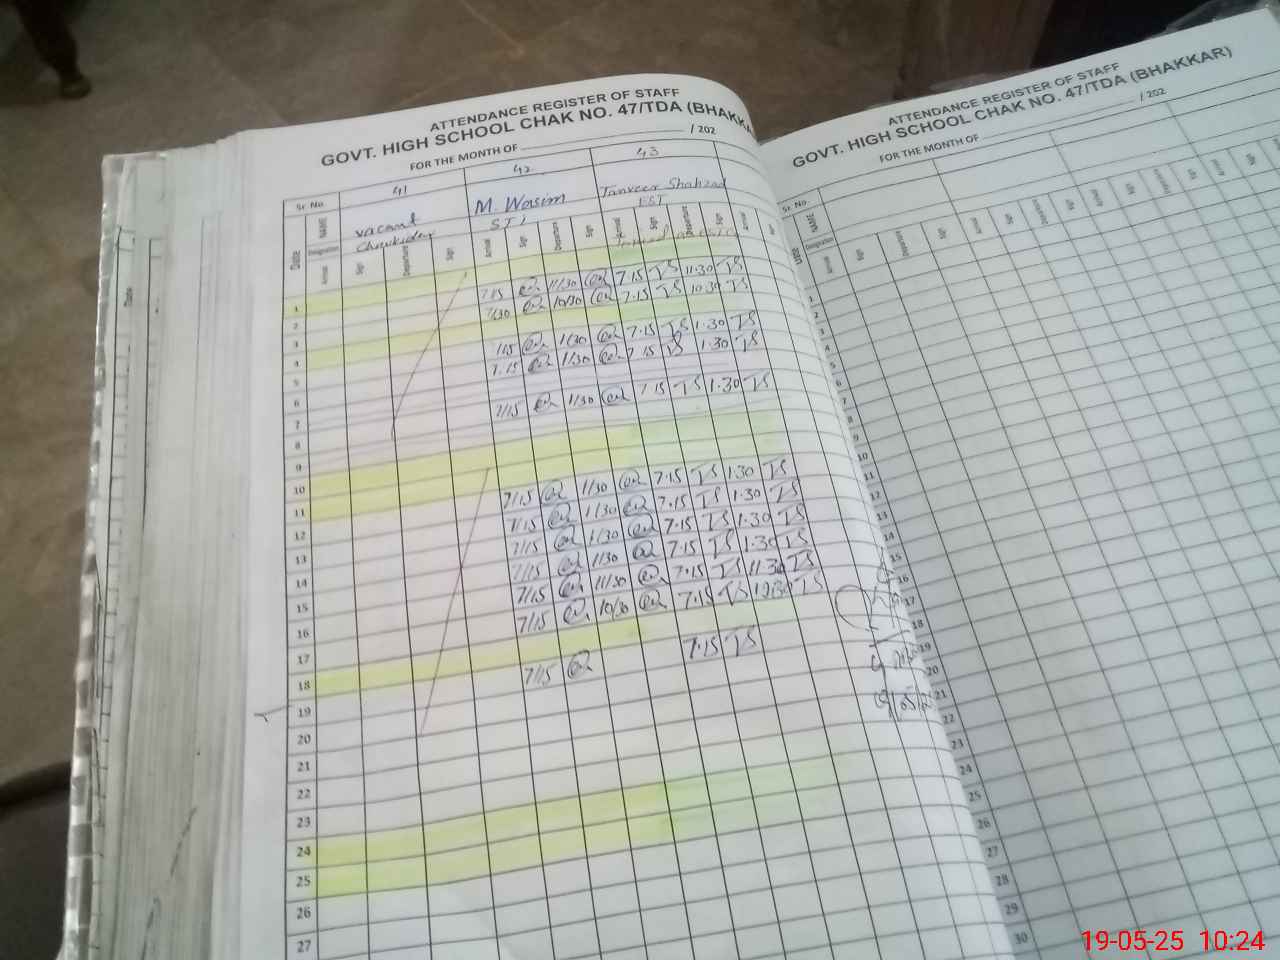 ATTENDANCE REGISTER OF STAFF
GOVT. HIGH SCHOOL CHAK NO. 47/TDA (BHAKKA
FOR THE MONTH OF / 202
41 42 43
Sr. No. NAME vacant M. Wasim Tanveer Shahzad
Designation Chowkidar EST
Date Arrival Sign Departure Sign Arrival Sign Departure Sign Arrival Sign Departure Sign Arrival Sign
1
2 7/15 11/30 7.15 TS 11.30 TS
3 7/30 10/30 7.15 TS 10.30 TS
4
5 7/15 1/30 7.15 TS 1.30 TS
6 7.15 1/30 7.15 TS 1.30 TS
7
8 7/15 1/30 7.15 TS 1.30 TS
9
10
11
12 7/15 1/30 7.15 TS 1.30 TS
13 7/15 1/30 7.15 TS 1.30 TS
14 7/15 1/30 7.15 TS 1.30 TS
15 7/15 1/30 7.15 TS 1.30 TS
16 7/15 11/30 7.15 TS 11.30 TS
17 7/15 10/30 7.15 TS TS
18
19 7/15 7.15 TS
20
21
22
23
24
25
26
27
ATTENDANCE REGISTER OF STAFF
GOVT. HIGH SCHOOL CHAK NO. 47/TDA (BHAKKAR)
FOR THE MONTH OF / 202
Sr. No. NAME
Designation
Date Arrival Sign Departure Sign Arrival Sign Departure Sign Arrival Sign
1
2
3
4
5
6
7
8
9
10
11
12
13
14
15
16
17
18
19
20
21
22
23
24
25
26
27
28
29
30
19-05-25 10:24